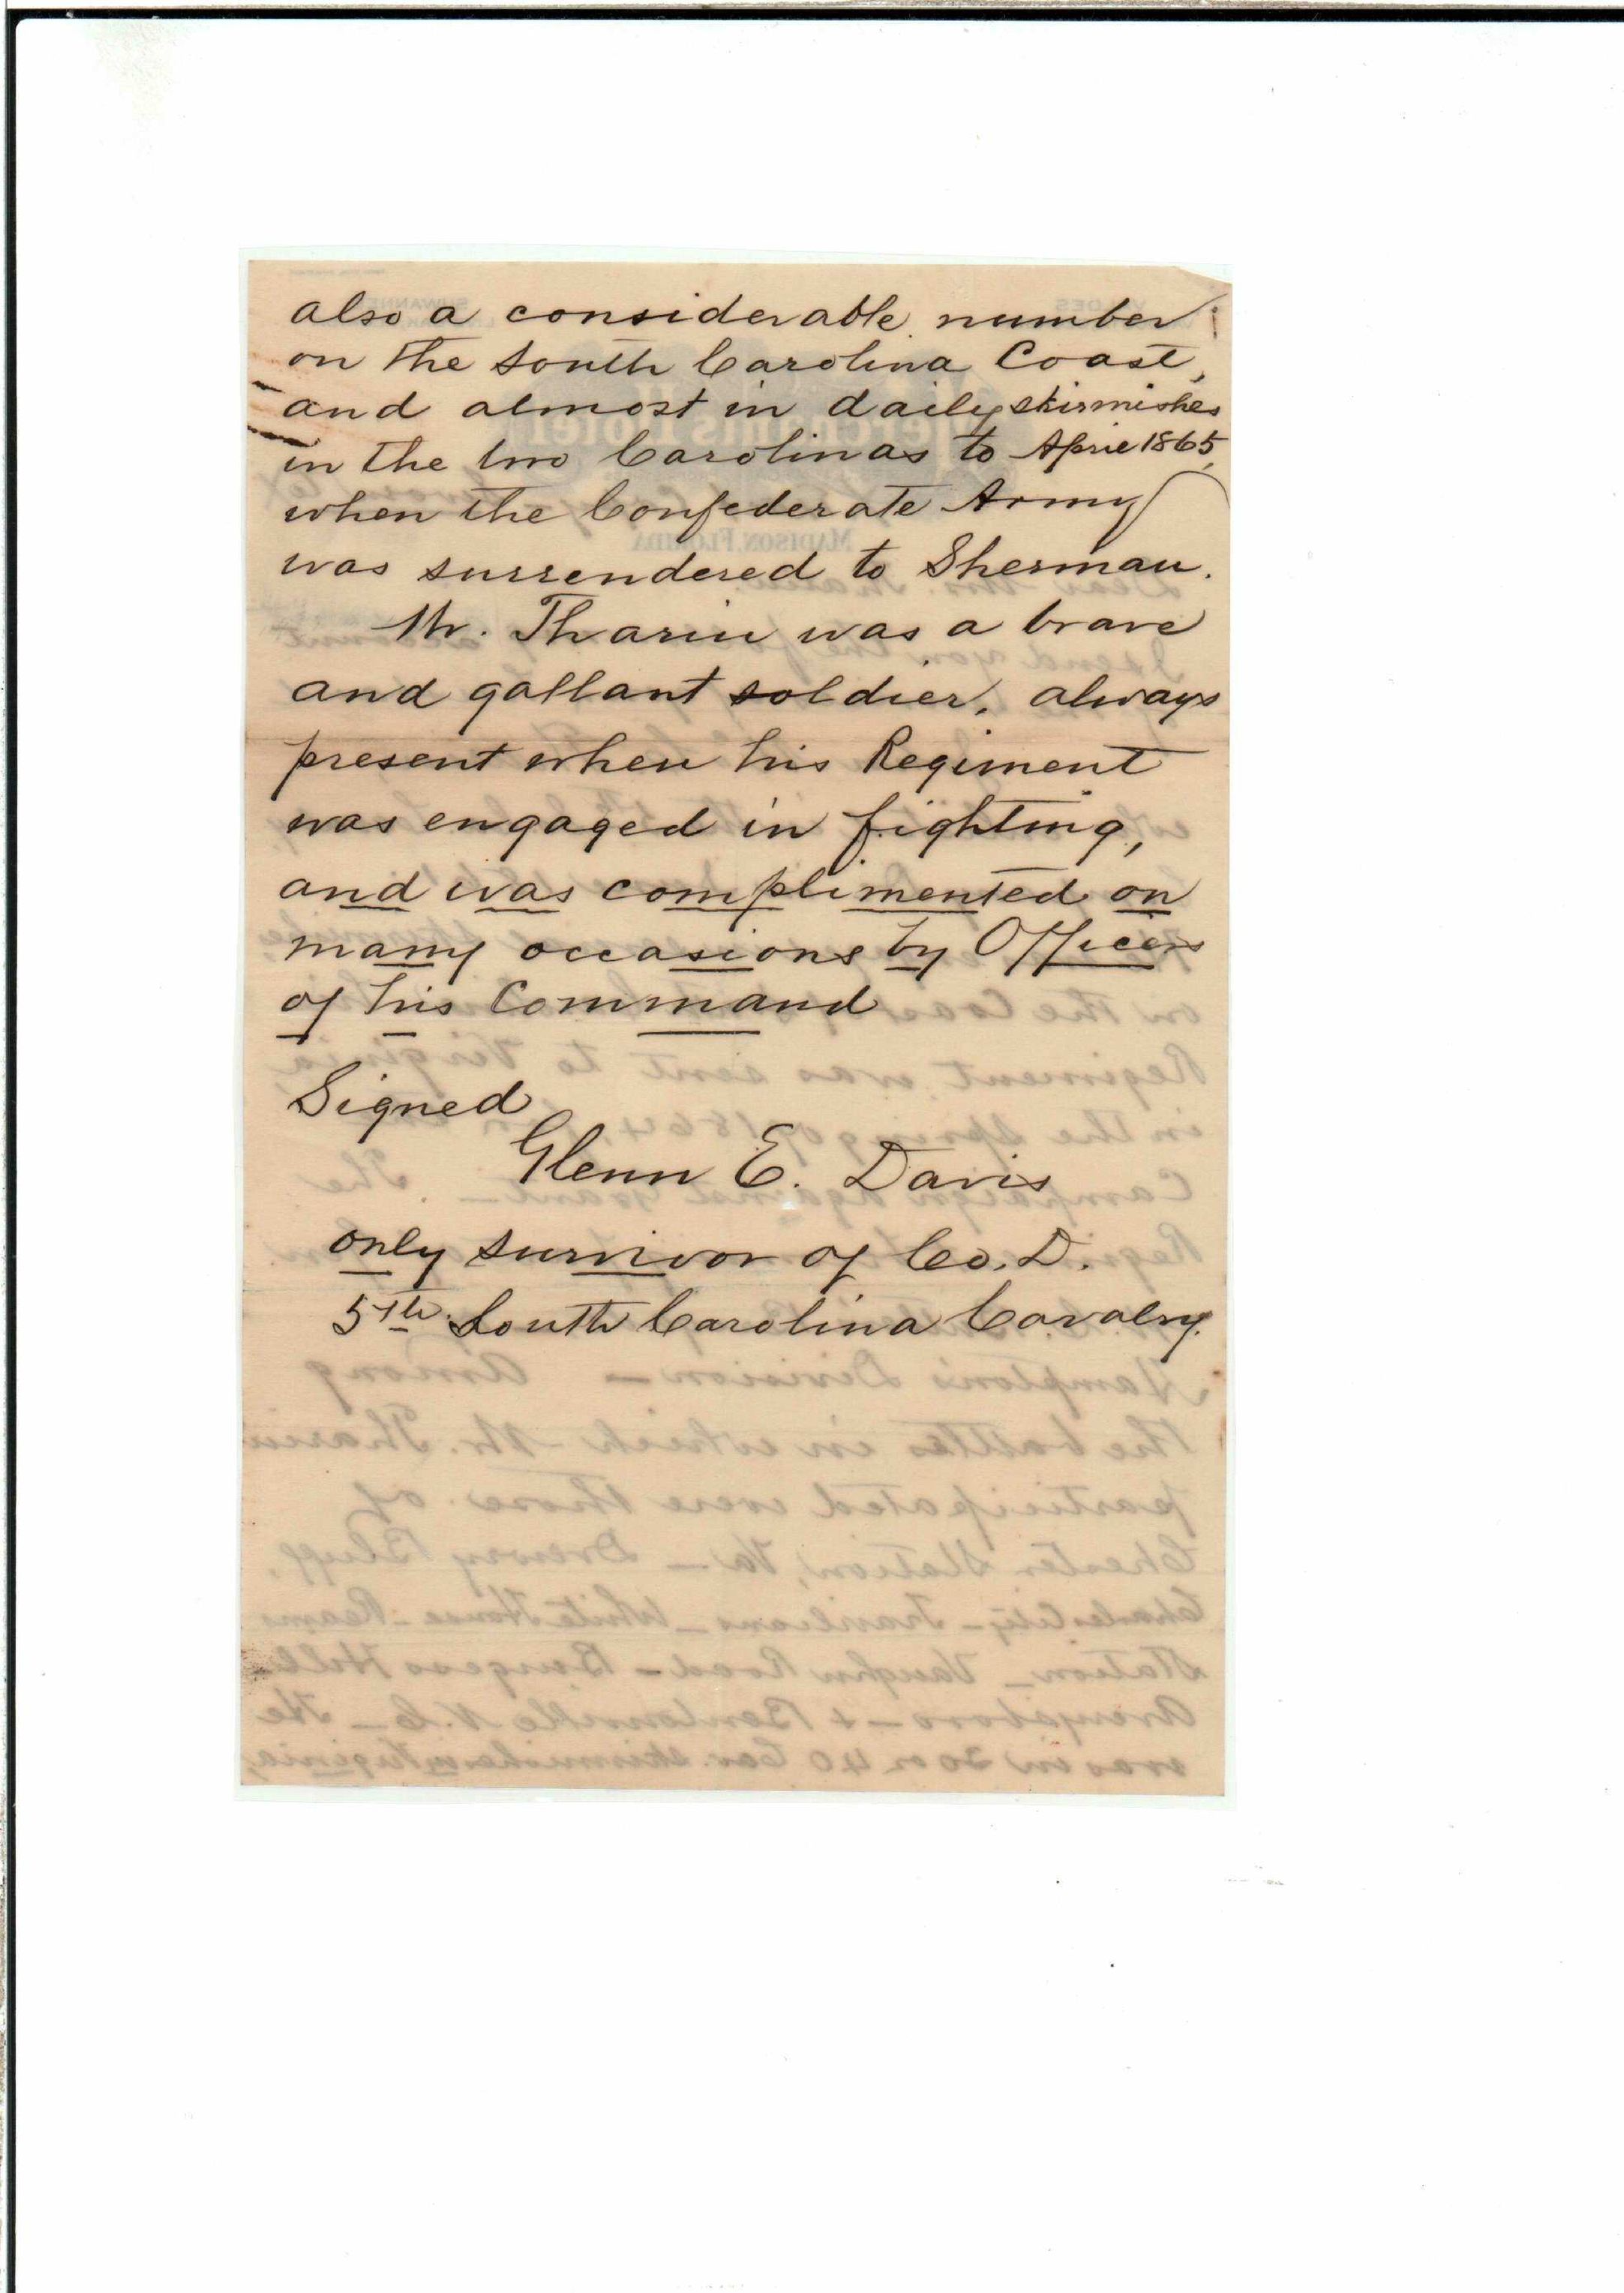 also a considerable number
on the South Carolina Coast,
and almost in daily skirmishes
in the two Carolinas to April 1865,
when the Confederate Army
was surrendered to Sherman.
Mr. Tharin was a brave
and gallant soldier, always
present when his Regiment
was engaged in fighting,
and was complimented on
many occasions by Officers
of his Command
Signed
Glenn E. Davis
only survivor of Co. D.
5th South Carolina Cavalry.